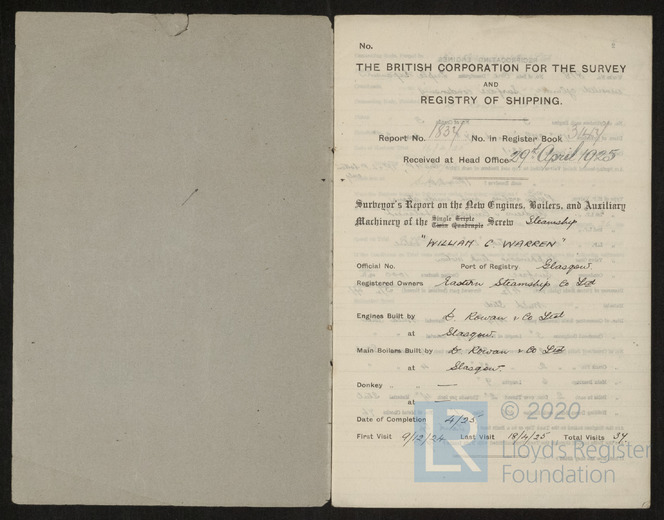 No.
THE BRITISH CORPORATION FOR THE SURVEY
AND
REGISTRY OF SHIPPING.
Report No. 1834 No. in Register Book
Received at Head Office 29th April 1925
Surveyor's Report on the New Engines, Boilers, and Auxiliary
Machinery of the Single Triple Twin Quadruple Screw Steamship
"WILLIAM C. WARREN"
Official No. Port of Registry Glasgow.
Registered Owners Eastern Steamship Co Ltd
Engines Built by D. Rowan & Co Ltd
at Glasgow.
Main Boilers Built by D. Rowan & Co Ltd
at Glasgow.
Donkey —
at —
Date of Completion 4/25
First Visit 9/12/24 Last Visit 18/4/25 Total Visits 34.
© 2020
LR
Lloyd's Register
Foundation